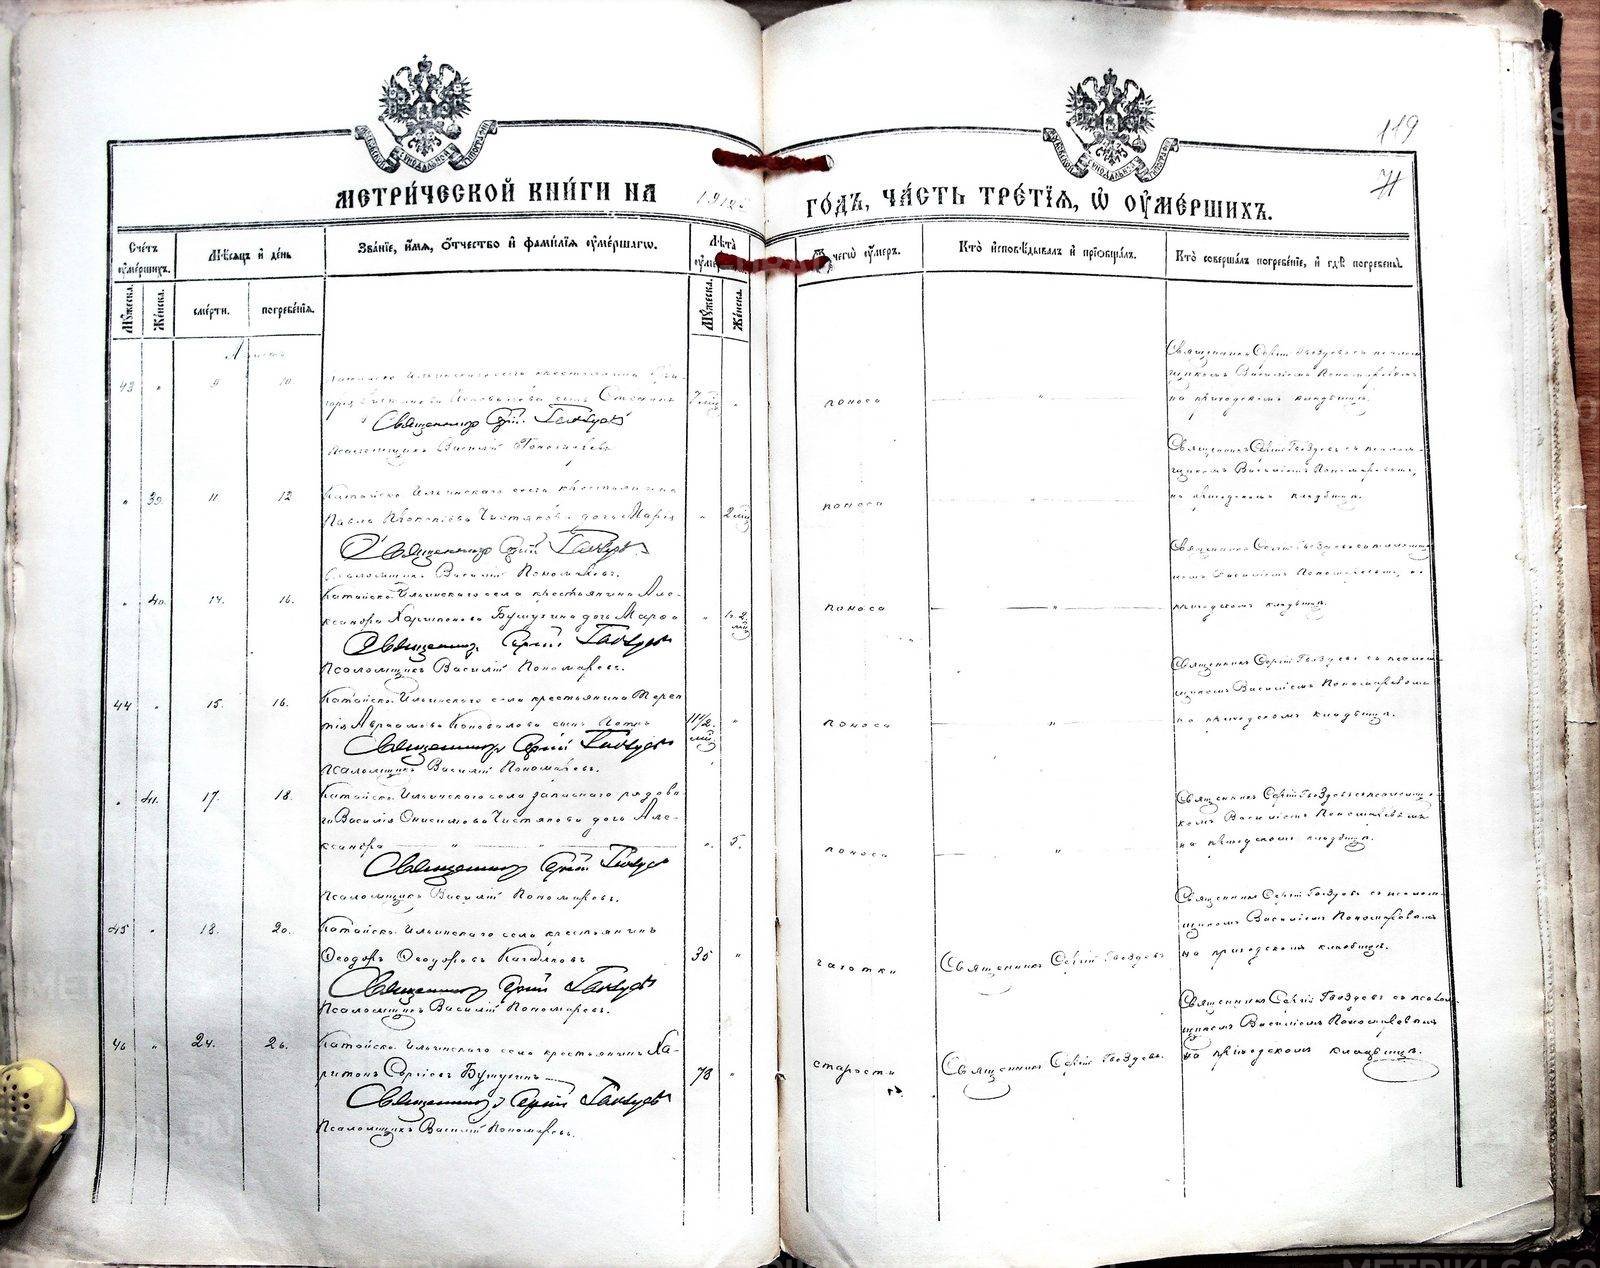 119
71
МЕТРИ́ЧЕСКОЙ КНИ́ГИ НА 191
ГО́ДЪ, ЧА́СТЬ ТРЕ́ТІѦ, Ѽ ОУ҆МЕ́РШИХЪ.
Сче́тъ оу҆ме́ршихъ.
Мѣ́сяцъ и҆ де́нь
Зва́нїе, и҆́мѧ, ѻ҆́тчество и҆ фамѵ́лїѧ оу҆ме́ршагѡ.
Лѣ́та
чегѡ̀ оу҆́меръ.
Кто̀ и҆сповѣ́дывалъ и҆ прїѡбща́лъ.
Кто̀ соверша́лъ погребе́нїе, и҆ гдѣ̀ погребены̀.
Му́жеска.
Же́нска.
сме́рти.
погребе́нїѧ.
Му́жеска.
Же́нска.
43 " 9 10
сынъ
Священникъ Сергій Гвоздевъ
Псаломщикъ Василій Пономаревъ
поноса
Священникъ Сергій Гвоздевъ съ псалом-
щикомъ Василіемъ Пономаревымъ
на приходскомъ кладбищѣ.
" 39 11 12
Катайско-Ильинскаго села крестьянина
Павла Прокопіева Чистякова дочь Марія
" 2 мѣс
Священникъ Сергій Гвоздевъ
Псаломщикъ Василій Пономаревъ.
поноса
Священникъ Сергій Гвоздевъ съ псалом-
щикомъ Василіемъ Пономаревымъ,
на приходскомъ кладбищѣ.
" 40 14. 16.
Катайско-Ильинскаго села крестьянина Але-
ксандра Харитонова Бушуева дочь Марфа
Священникъ Сергій Гвоздевъ
Псаломщикъ Василій Пономаревъ.
поноса
Священникъ Сергій Гвоздевъ съ псаломщи-
комъ Василіемъ Пономаревымъ, на
приходскомъ кладбищѣ.
44 " 15. 16.
Катайско-Ильинскаго села крестьянина Терен-
тія Авраамова Коновалова сынъ Петръ
11 1/2 мѣс "
Священникъ Сергій Гвоздевъ
Псаломщикъ Василій Пономаревъ.
поноса
Священникъ Сергій Гвоздевъ съ псалом-
щикомъ Василіемъ Пономаревымъ
на приходскомъ кладбищѣ.
" 41. 17. 18.
Катайско-Ильинскаго села запаснаго рядова-
го Василія Онисимова Чистякова дочь Але-
ксандра " 5.
Священникъ Сергій Гвоздевъ
Псаломщикъ Василій Пономаревъ.
поноса
Священникъ Сергій Гвоздевъ съ псаломщи-
комъ Василіемъ Пономаревымъ
на приходскомъ кладбищѣ.
45 " 18. 20.
Катайско-Ильинскаго села крестьянинъ
Ѳеодоръ Ѳеодоровъ
35 "
Священникъ Сергій Гвоздевъ
Псаломщикъ Василій Пономаревъ.
чахотки
Священникъ Сергій Гвоздевъ
Священникъ Сергій Гвоздевъ съ псалом-
щикомъ Василіемъ Пономаревымъ
на приходскомъ кладбищѣ.
46 " 24. 26.
Катайско-Ильинскаго села крестьянинъ Ха-
ритонъ Бушуевъ
78 "
Священникъ Сергій Гвоздевъ
Псаломщикъ Василій Пономаревъ.
старости
Священникъ Сергій Гвоздевъ.
Священникъ Сергій Гвоздевъ съ псалом-
щикомъ Василіемъ Пономаревымъ
на приходскомъ кладбищѣ.